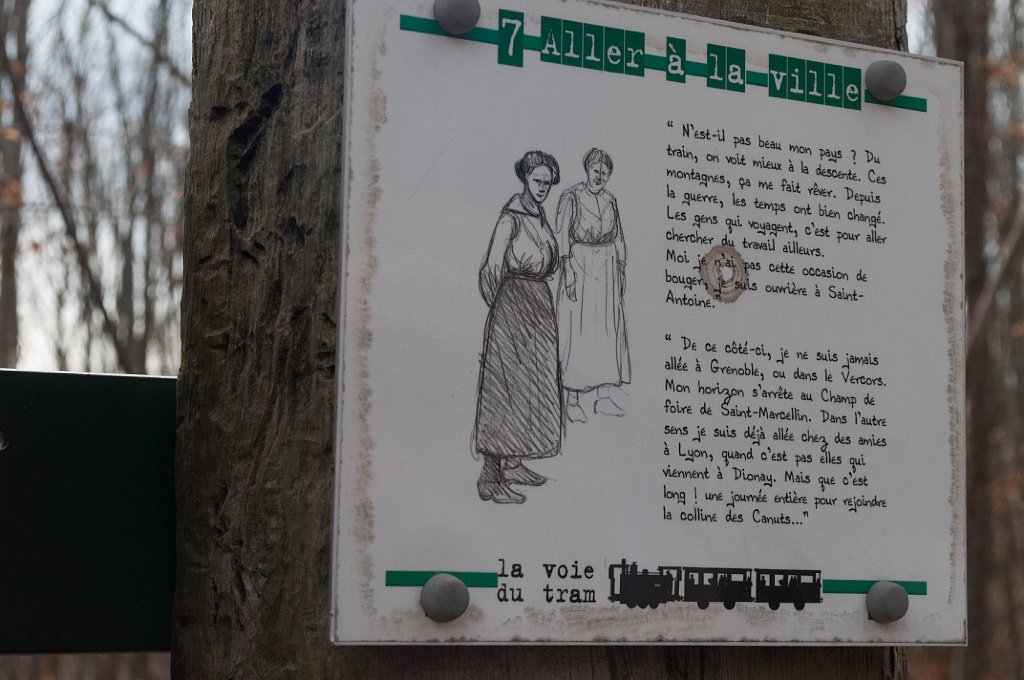 7 Aller à la ville
“ N'est-il pas beau mon pays ? Du
train, on voit mieux à la descente. Ces
montagnes, ça me fait rêver. Depuis
la guerre, les temps ont bien changé.
Les gens qui voyagent, c'est pour aller
chercher du travail ailleurs.
Moi je n'ai pas cette occasion de
bouger, je suis ouvrière à Saint-
Antoine.
“ De ce côté-ci, je ne suis jamais
allée à Grenoble, ou dans le Vercors.
Mon horizon s'arrête au Champ de
foire de Saint-Marcellin. Dans l'autre
sens je suis déjà allée chez des amies
à Lyon, quand c'est pas elles qui
viennent à Dionay. Mais que c'est
long ! une journée entière pour rejoindre
la colline des Canuts..."
la voie
du tram